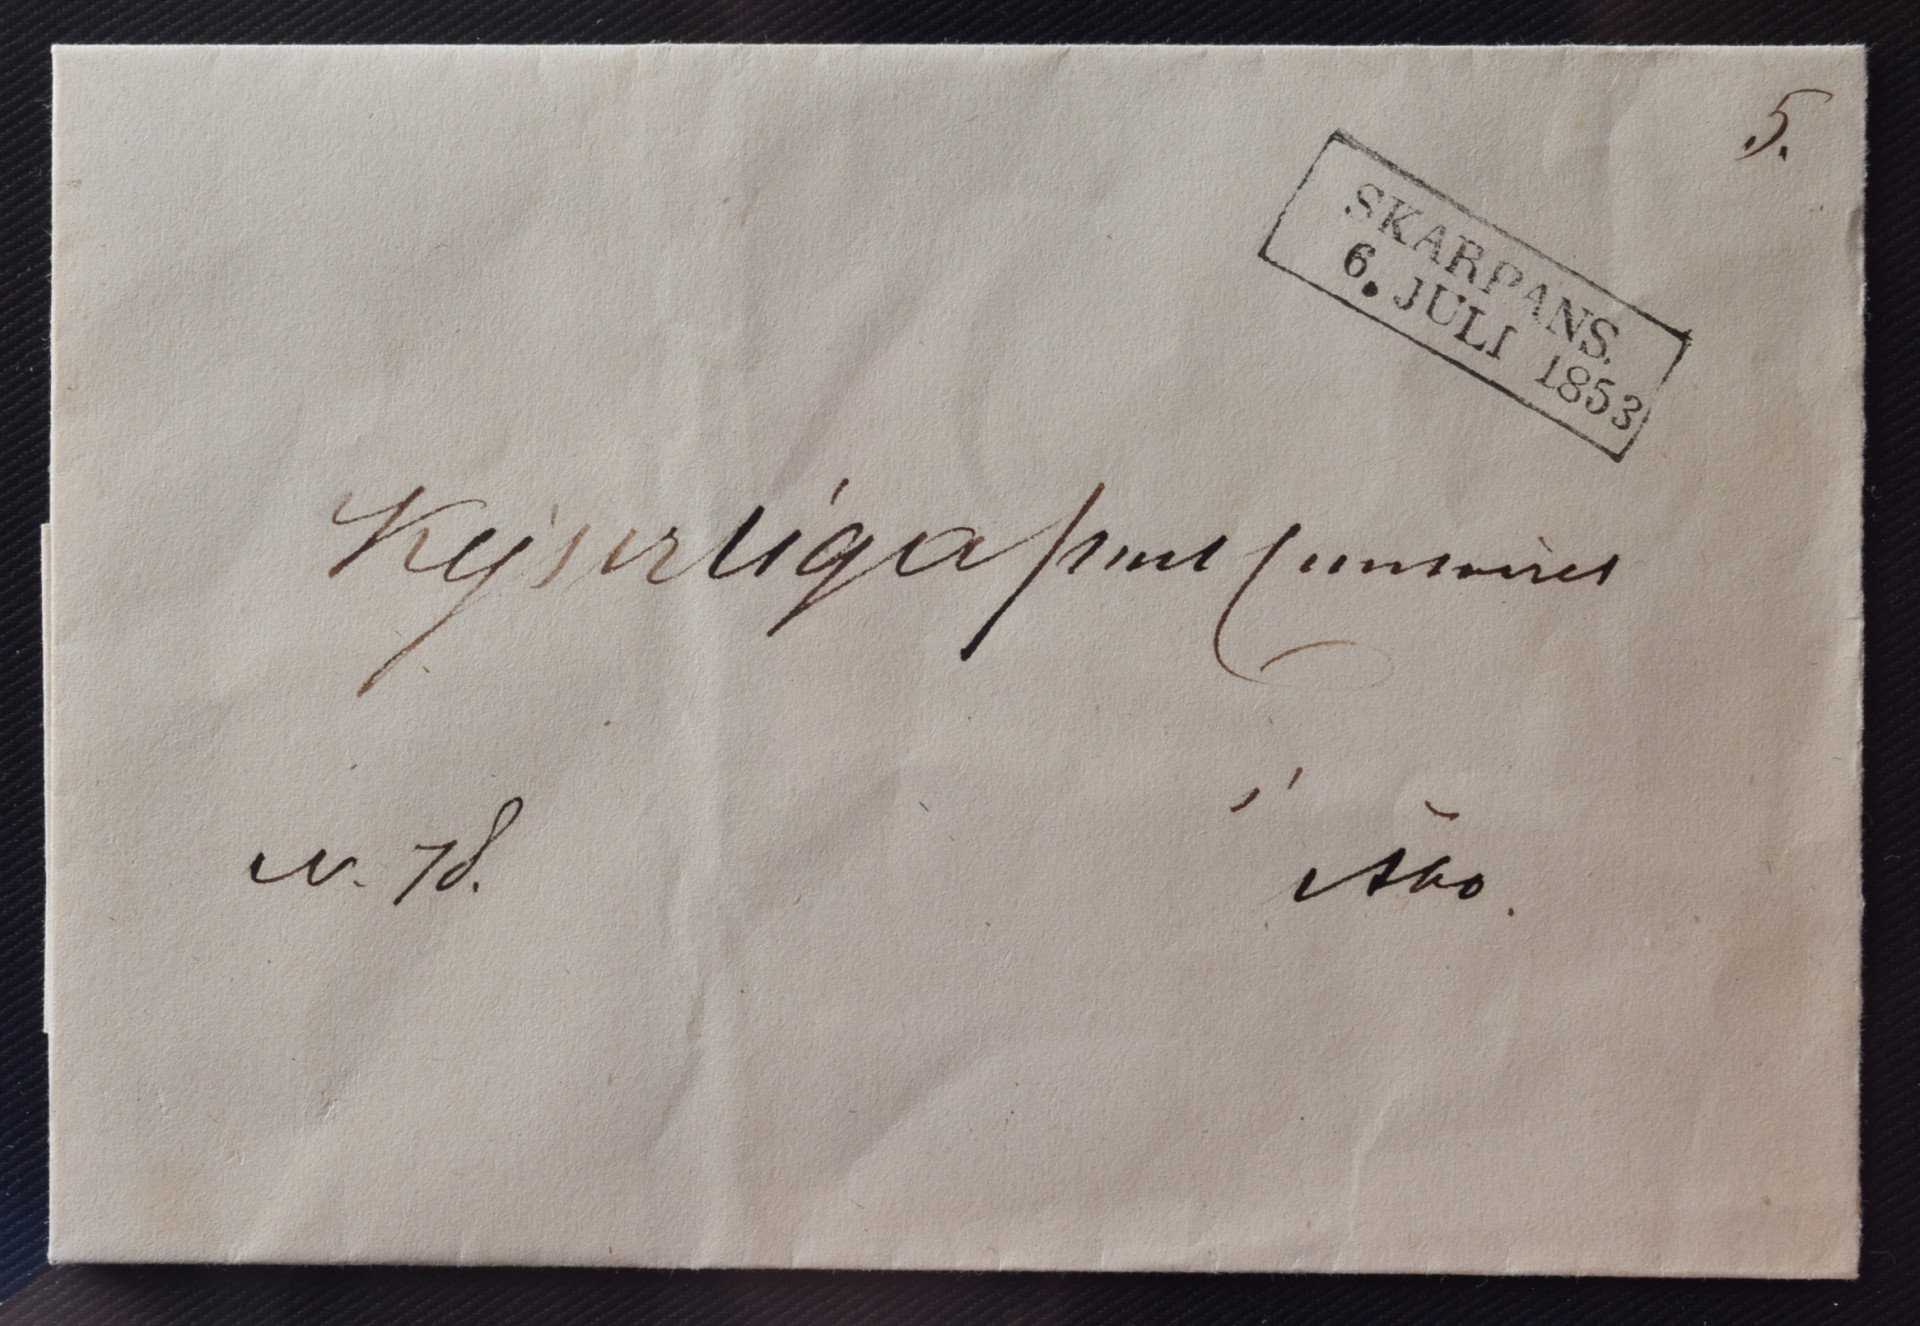 5.
SKARPANS.
6. JULI 1853
Kejserliga post Contoiret
i
N. 78. Åbo.